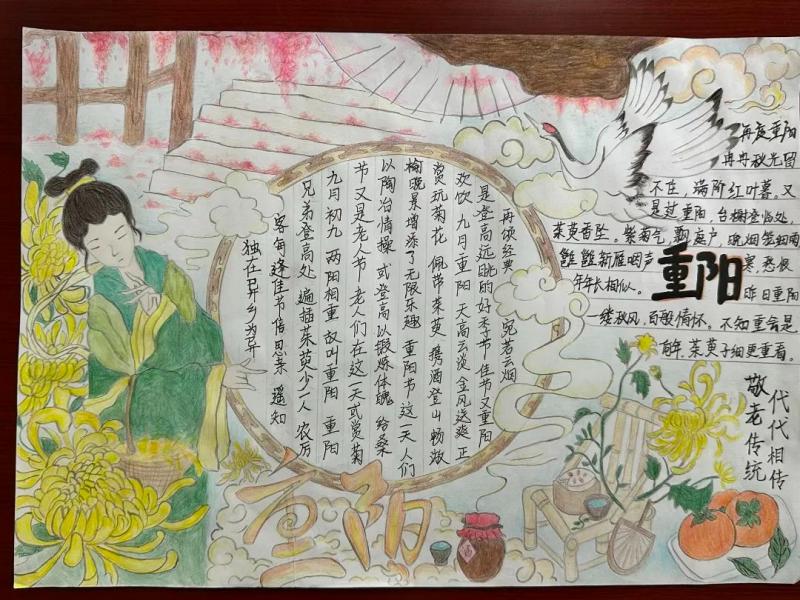 独在异乡为异
客每逢佳节倍思亲 遥知
兄弟登高处 遍插茱萸少一人 农历
九月初九 两阳相重 故叫重阳 重阳
节又是老人节 老人们在这一天或赏菊
以陶冶情操 或登高以锻炼体魄 给桑
榆晚景增添了无限乐趣 重阳节这一天 人们
赏玩菊花 佩带茱萸 携酒登山 畅游
欢饮 九月重阳 天高云淡 金风送爽 正
是登高远眺的好季节 佳节又重阳
再颂经典 宛若云烟
重阳
再度重阳
冉冉秋光留
不住，满阶红叶暮。又
是过重阳，台榭登临处，
茱萸香坠。紫菊气，飘庭户，晚烟笼细雨
雝雝新雁咽声寒，愁恨
年年长相似。昨日重阳
一缕秋风，百般情怀。不知重会是
何年，茱萸子细更重看。
重阳
敬老传统
代代相传
酒